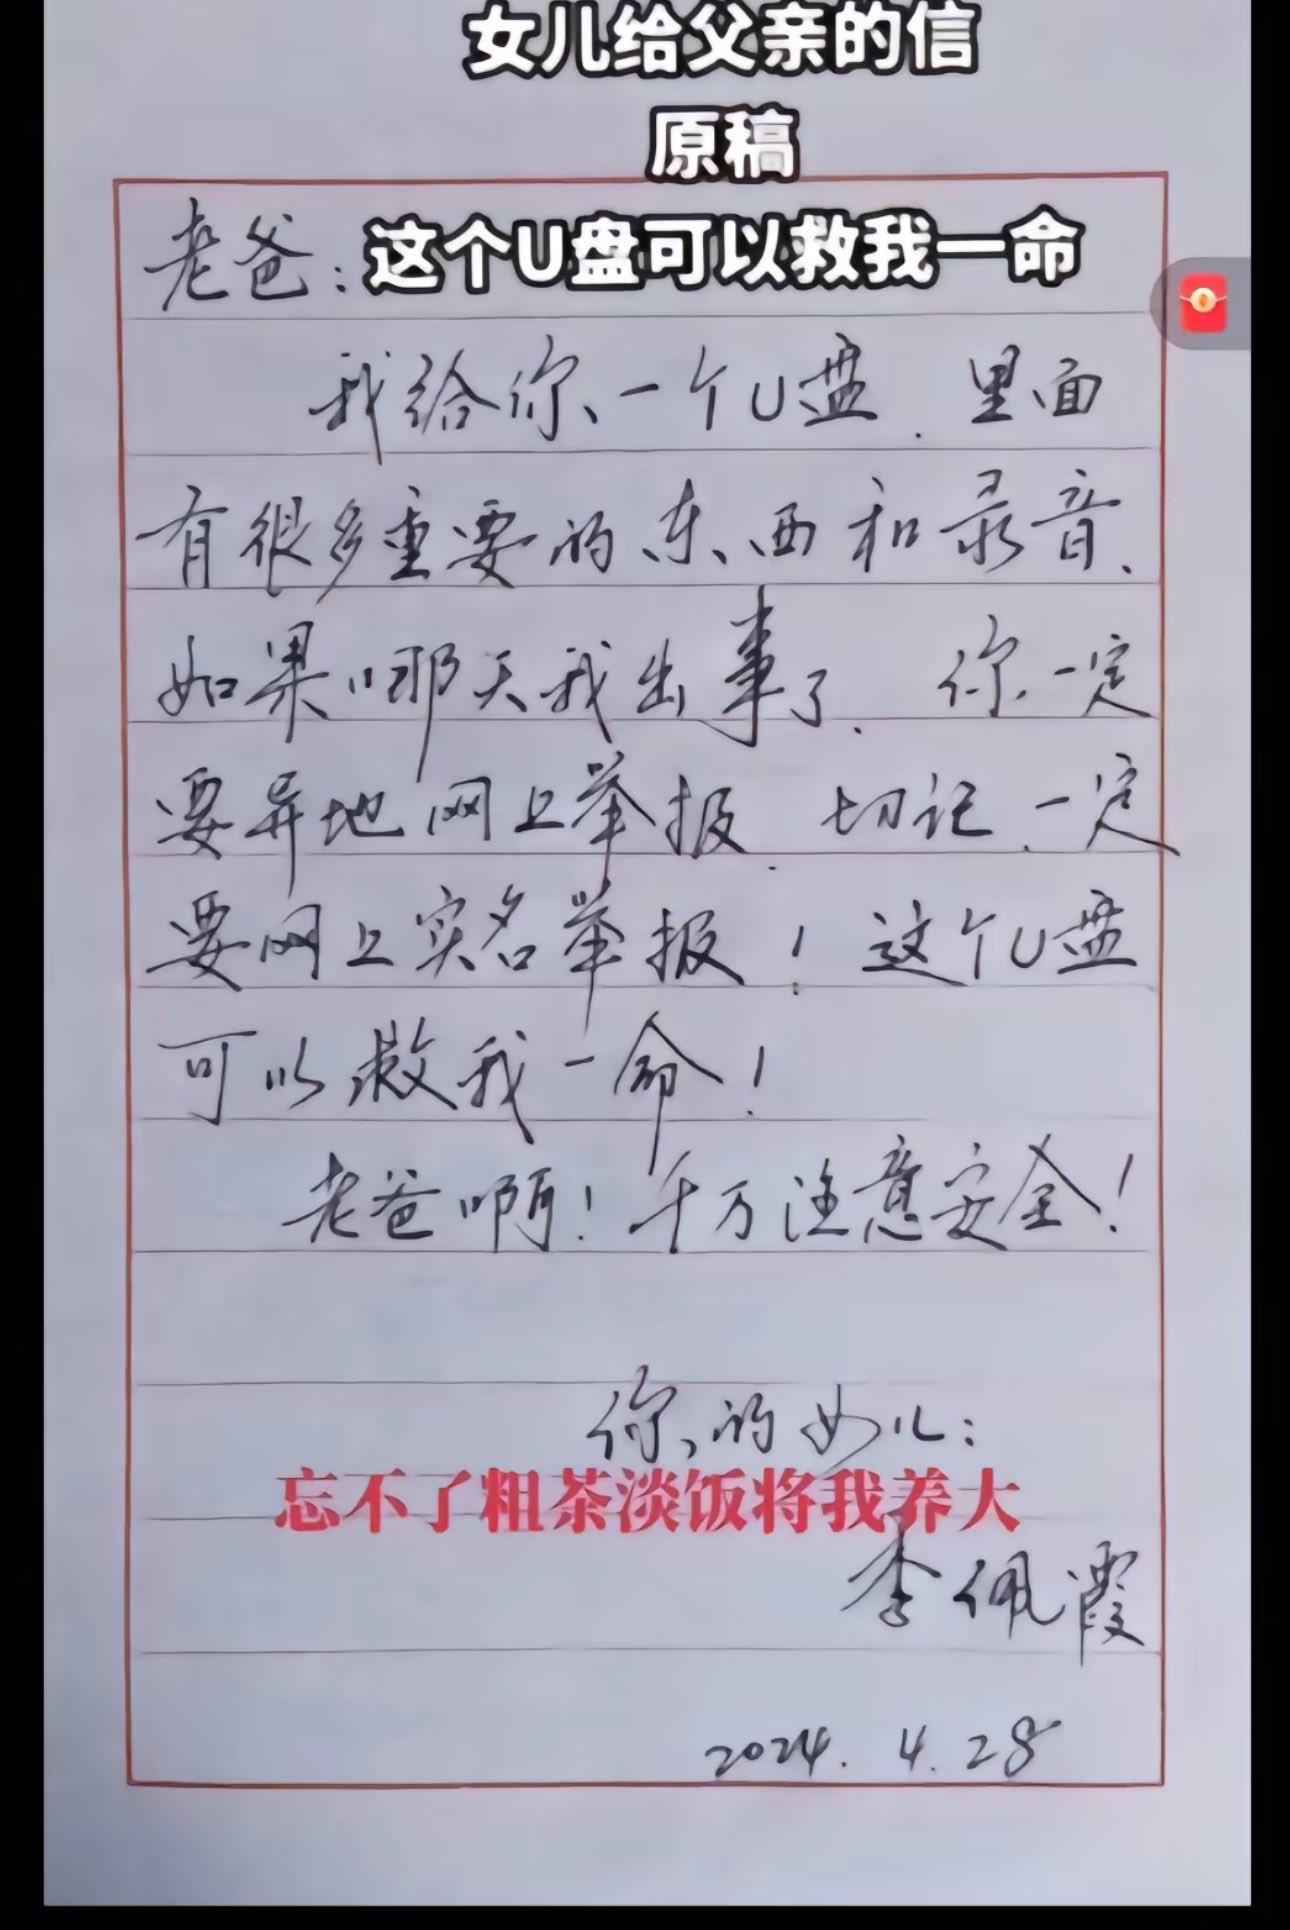 女儿给父亲的信
原稿
这个U盘可以救我一命
老爸：
我给你一个U盘．里面
有很多重要的东西和录音、
如果哪天我出事了．你一定
要异地网上举报．切记．一定
要网上实名举报！这个U盘
可以救我一命！
老爸啊！千万注意安全！
你的女儿：
忘不了粗茶淡饭将我养大
李佩霞
2024.4.28